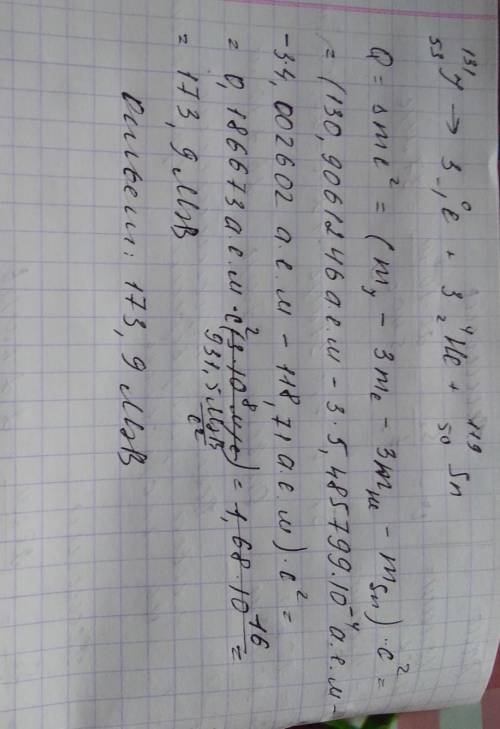 ¹³¹₅₃У → 3 ⁰₋₁e + 3 ⁴₂He + ¹¹⁹₅₀Sn
Q = Δmc² = (mᵧ − 3mₑ − 3m_He − m_Sn)·c² =
= (130,9061246 а.е.м − 3·5,485799·10⁻⁴ а.е.м −
− 3·4,002602 а.е.м − 118,71 а.е.м)·c² =
= 0,186673 а.е.м·c² (3·10⁸ м/с) = 1,68·10⁻¹⁶ =
931,5 МэВ/c²
= 173,9 МэВ
Ответ: 173,9 МэВ